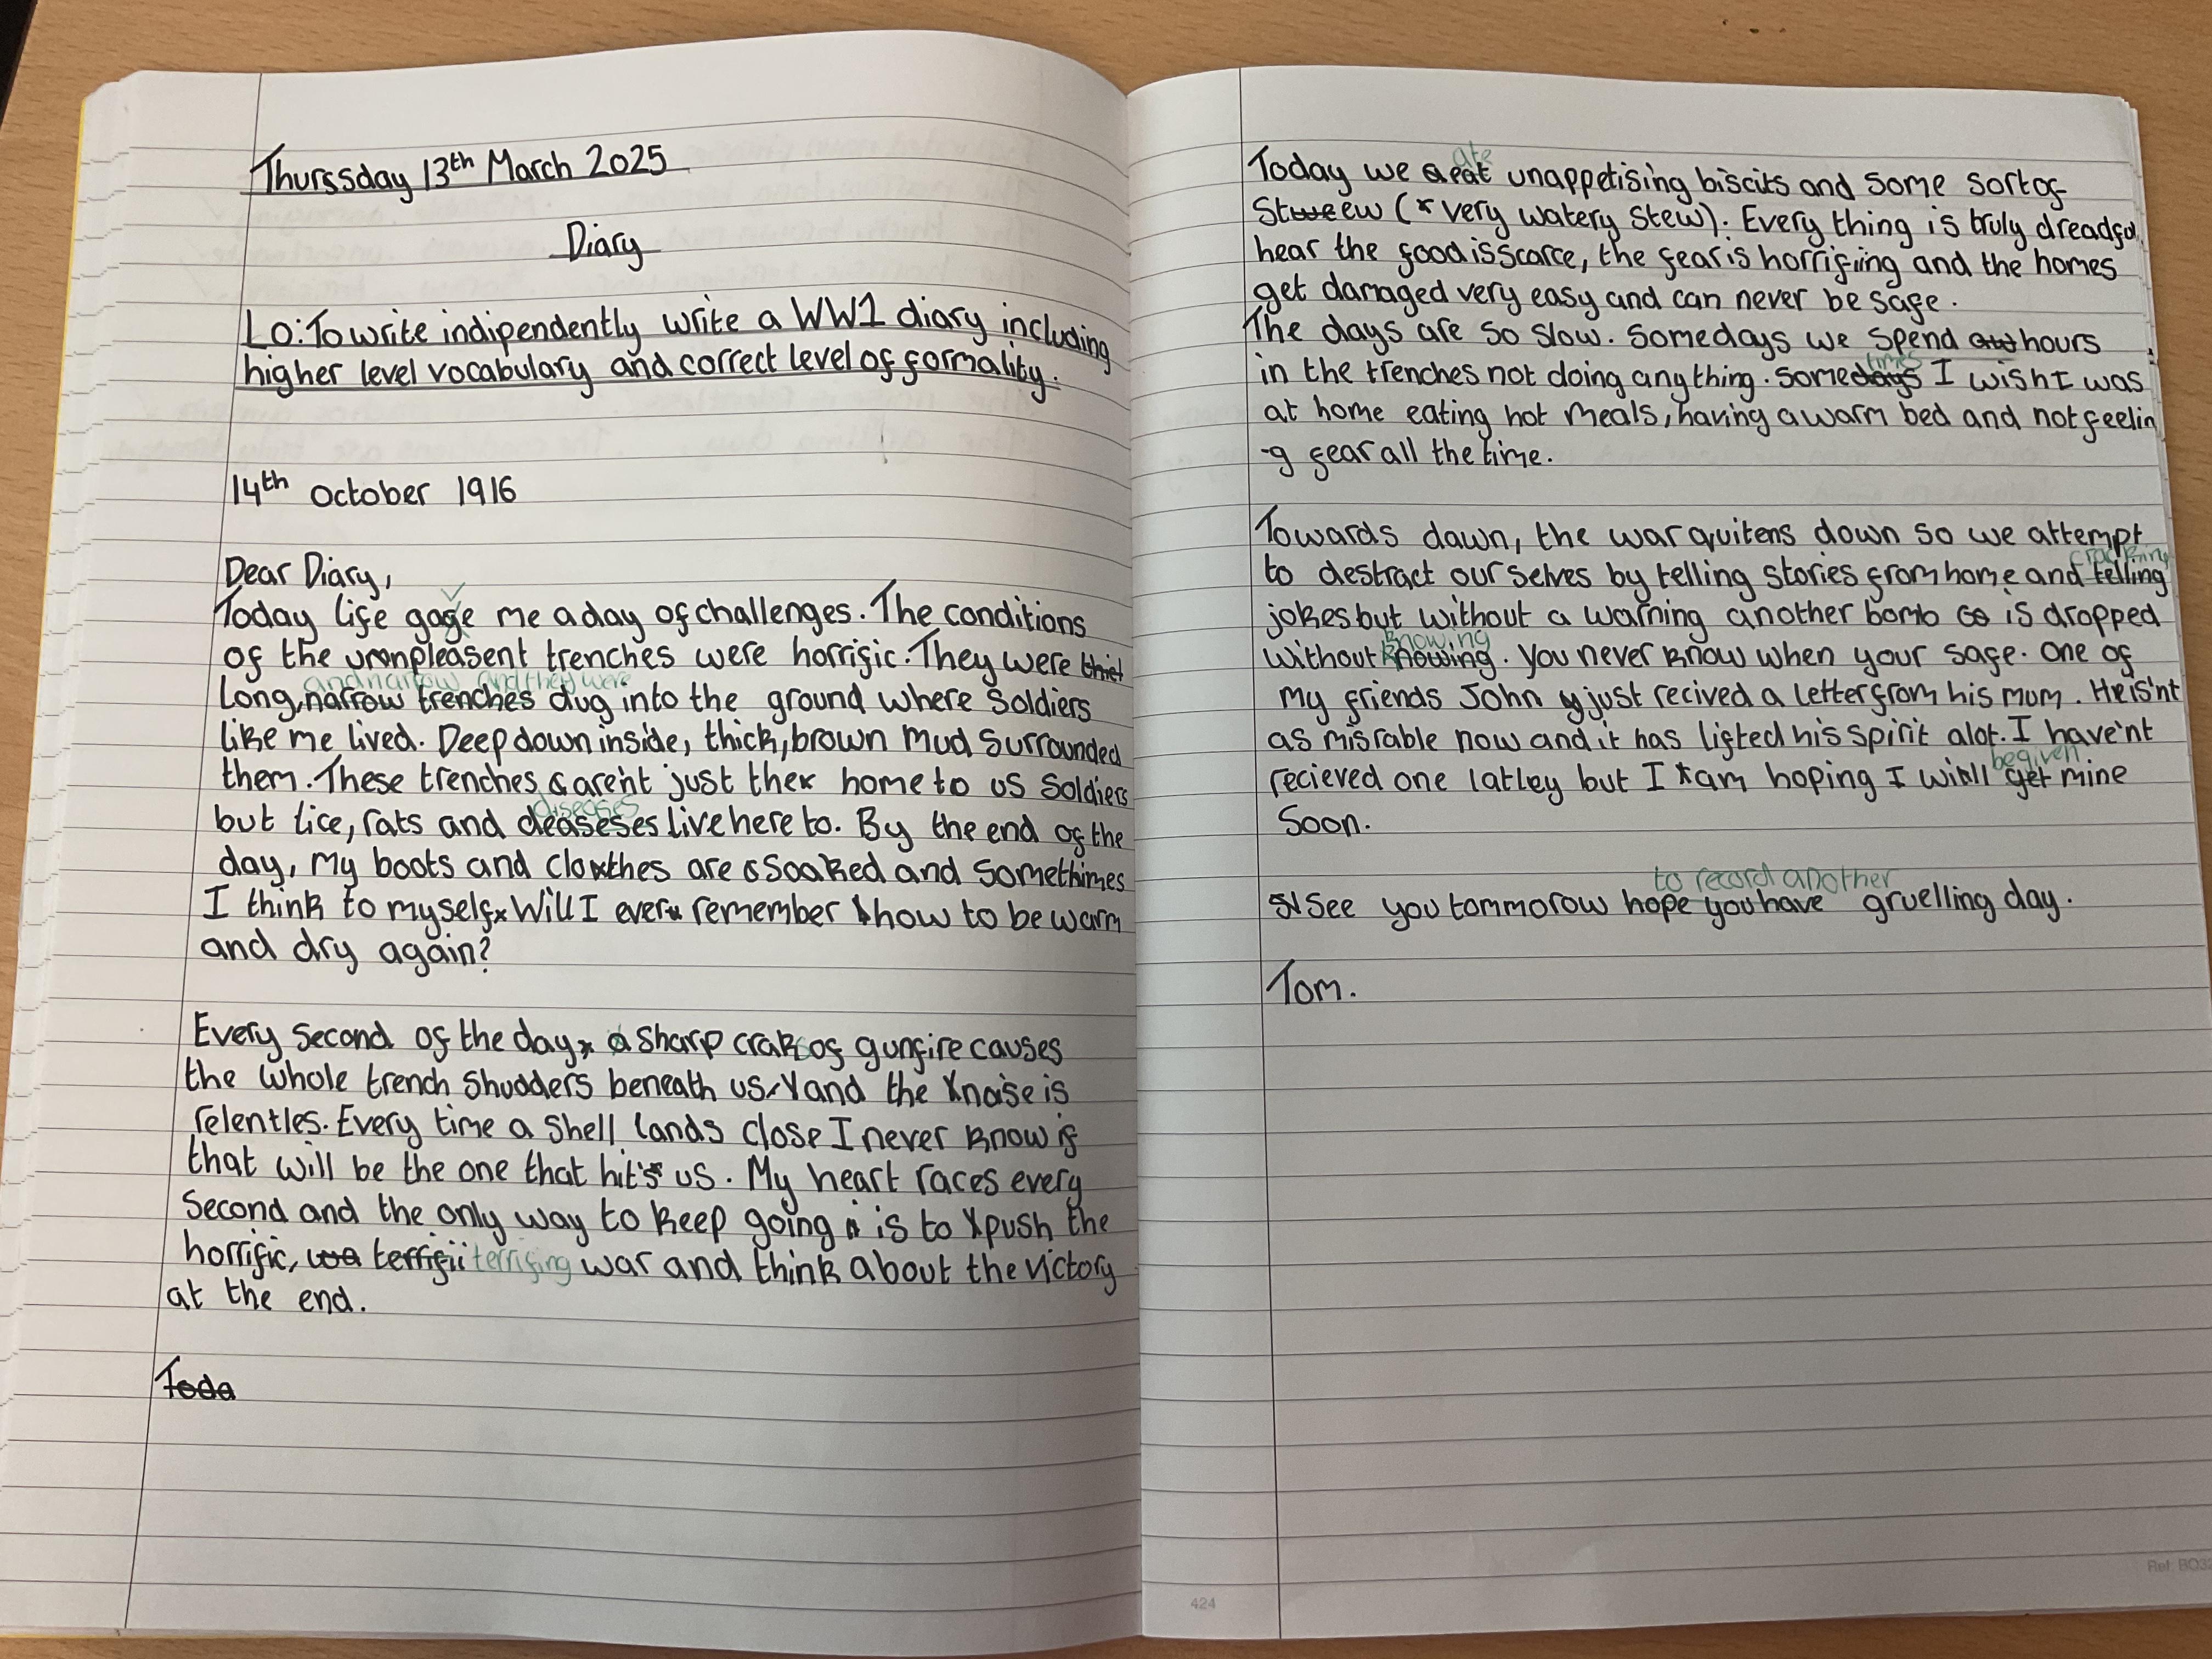 Thurssday 13th March 2025
Diary
Lo: To write indipendently write a WW1 diary including
higher level vocabulary and correct level of formality.
14th October 1916
Dear Diary,
v
Today life gave me a day of challenges. The conditions
of the unpleasent trenches were horrific. They were
and narrow and they were
Long, narrow trenches dug into the ground where soldiers
like me lived. Deep down inside, thick, brown mud surrounded
them. These trenches are'nt just the home to us soldiers
diseases
but lice, rats and deaseses live here to. By the end of the
day, my boots and clothes are soaked and somethimes
I think to myself Will I ever remember how to be warm
and dry again?
Every second of the day, a sharp craks of gunfire causes
the whole trench shudders beneath us and the noise is
relentles. Every time a shell lands close I never know if
that will be the one that hit's us. My heart races every
second and the only way to keep going is to push the
horrific, terrifii terrifing war and think about the victory
at the end.
Toda
ate
Today we eat unappetising biscits and some sort of
Steew (very watery stew). Every thing is truly dreadful
hear the food is scarce, the fear is horrifiing and the homes
get damaged very easy and can never be safe.
The days are so slow. Somedays we spend hours
times
in the trenches not doing any thing. Somedays I wish I was
at home eating hot meals, having a warm bed and not feelin
-g fear all the time.
Towards dawn, the war quitens down so we attempt
cracking
to destract our selves by telling stories from home and telling
jokes but without a warning another bomb is dropped
knowing
without knowing. You never know when your safe. One of
my friends John just recived a letter from his mum. He is'nt
as misrable now and it has lifted his spirit alot. I have'nt
be given
recieved one latley but I am hoping I will get mine
Soon.
to record another
See you tommorow hope you have gruelling day.
Tom.
424